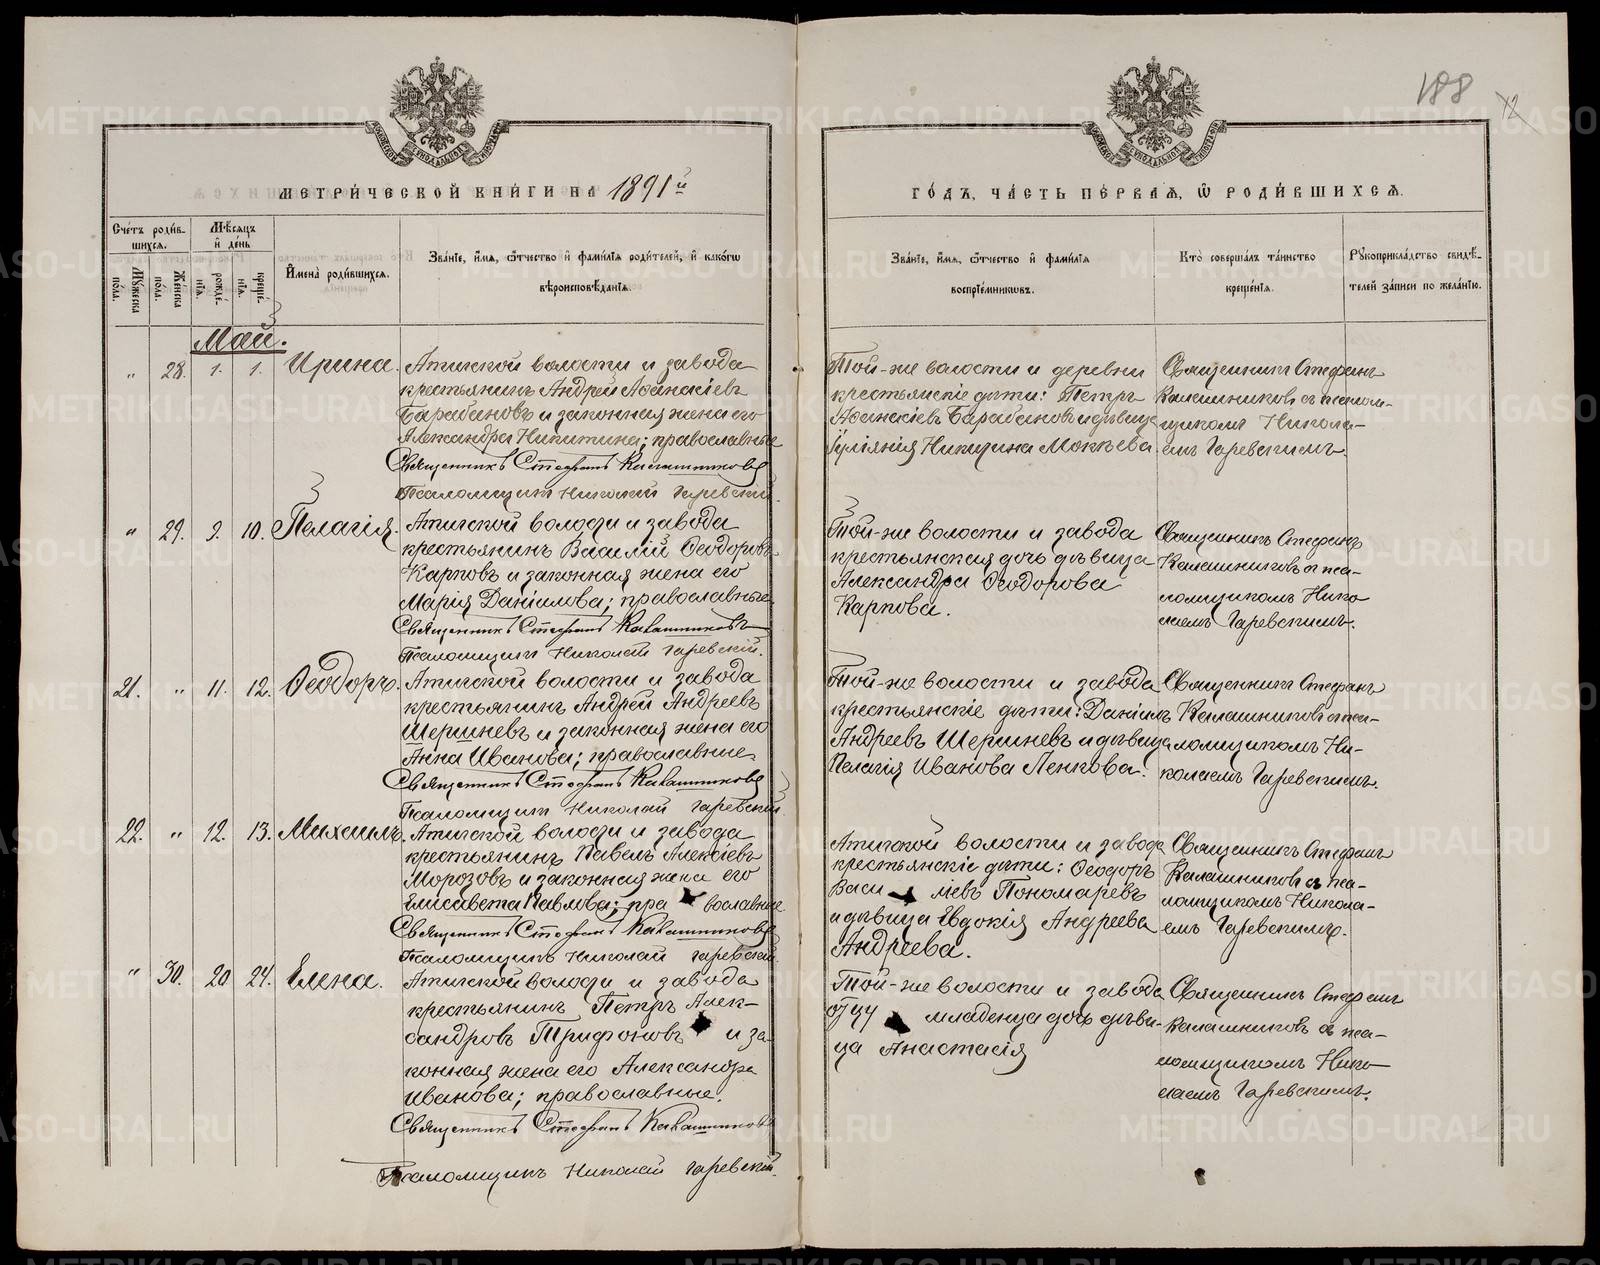 188
12
МЕТРИ́ЧЕСКОЙ КНИ́ГИ НА 1891й
ГО́ДЪ, ЧА́СТЬ ПЕ́РВАѦ, Ѿ РОДИ́ВШИХСѦ.
Счетъ роди́в-
шихсѧ.
Мꙋжеска
пола.
Же́нска
пола.
Мѣ́сѧцъ
и҆ де́нь
рожде́-
нїѧ.
креще́-
нїѧ.
И҆мена̀ роди́вшихсѧ.
Зва́нїе, и҆́мѧ, ѻ҆́тчество и҆ фами́лїѧ роди́телей, и҆ како́гѡ
вѣроисповѣ́данїѧ.
Зва́нїе, и҆́мѧ, ѻ҆́тчество и҆ фами́лїѧ
воспрїе́мникѡвъ.
Кто̀ соверша́лъ та́инство
креще́нїѧ.
Рꙋкоприкла́дство свидѣ́-
телей за́писи по жела́нїю.
Май.
" 28. 1. 1. Ирина.
Атигской волости и завода
крестьянинъ Андрей Афанасіевъ
Барабановъ и законная жена его
Александра Никитина; православные
Священникъ Стефанъ Калашниковъ
Псаломщикъ Николай Гаревскій.
Той-же волости и деревни
крестьянскіе дѣти: Петръ
Афанасіевъ Барабановъ и дѣвица
Іуліянія Никитина Мокѣева.
Священникъ Стефанъ
Калашниковъ съ псалом-
щикомъ Никола-
емъ Гаревскимъ.
" 29. 9. 10. Пелагія.
Атигской волости и завода
крестьянинъ Василій Ѳеодоровъ
Карповъ и законная жена его
Марія Даніилова; православные
Священникъ Стефанъ Калашниковъ
Псаломщикъ Николай Гаревскій.
Той-же волости и завода
крестьянская дочь дѣвица
Александра Ѳеодорова
Карпова.
Священникъ Стефанъ
Калашниковъ съ пса-
ломщикомъ Нико
лаемъ Гаревскимъ.
21. " 11. 12. Ѳеодоръ.
Атигской волости и завода
крестьянинъ Андрей Андреевъ
Шершневъ и законная жена его
Анна Иванова; православные
Священникъ Стефанъ Калашниковъ
Псаломщикъ Николай Гаревскій
Той-же волости и завода
крестьянскіе дѣти: Даніилъ
Андреевъ Шершневъ и дѣвица
Пелагія Иванова Пенкова.
Священникъ Стефанъ
Калашниковъ съ пса-
ломщикомъ Ни-
колаемъ Гаревскимъ.
22. " 12. 13. Михаилъ.
Атигской волости и завода
крестьянинъ Павелъ Алексіевъ
Морозовъ и законная жена его
Елисавета Павлова; пра вославные
Священникъ Стефанъ Калашниковъ
Псаломщикъ Николай Гаревскій
Атигской волости и завода
крестьянскіе дѣти: Ѳеодоръ
Васи ліевъ Пономаревъ
и дѣвица Евдокія Андреева
Андреева.
Священникъ Стефанъ
Калашниковъ съ пса-
ломщикомъ Никола-
емъ Гаревскимъ.
" 30. 20 24. Елена.
Атигской волости и завода
крестьянинъ Петръ Алек-
сандровъ Трифоновъ и за-
конная жена его Александра
Иванова; православные.
Священникъ Стефанъ Калашниковъ
Псаломщикъ Николай Гаревскій.
Той-же волости и завода
отцу младенца дочь дѣви-
ца Анастасія
Священникъ Стефанъ
Калашниковъ съ пса-
ломщикомъ Нико-
лаемъ Гаревскимъ.
METRIKI.GASO-URAL.RU